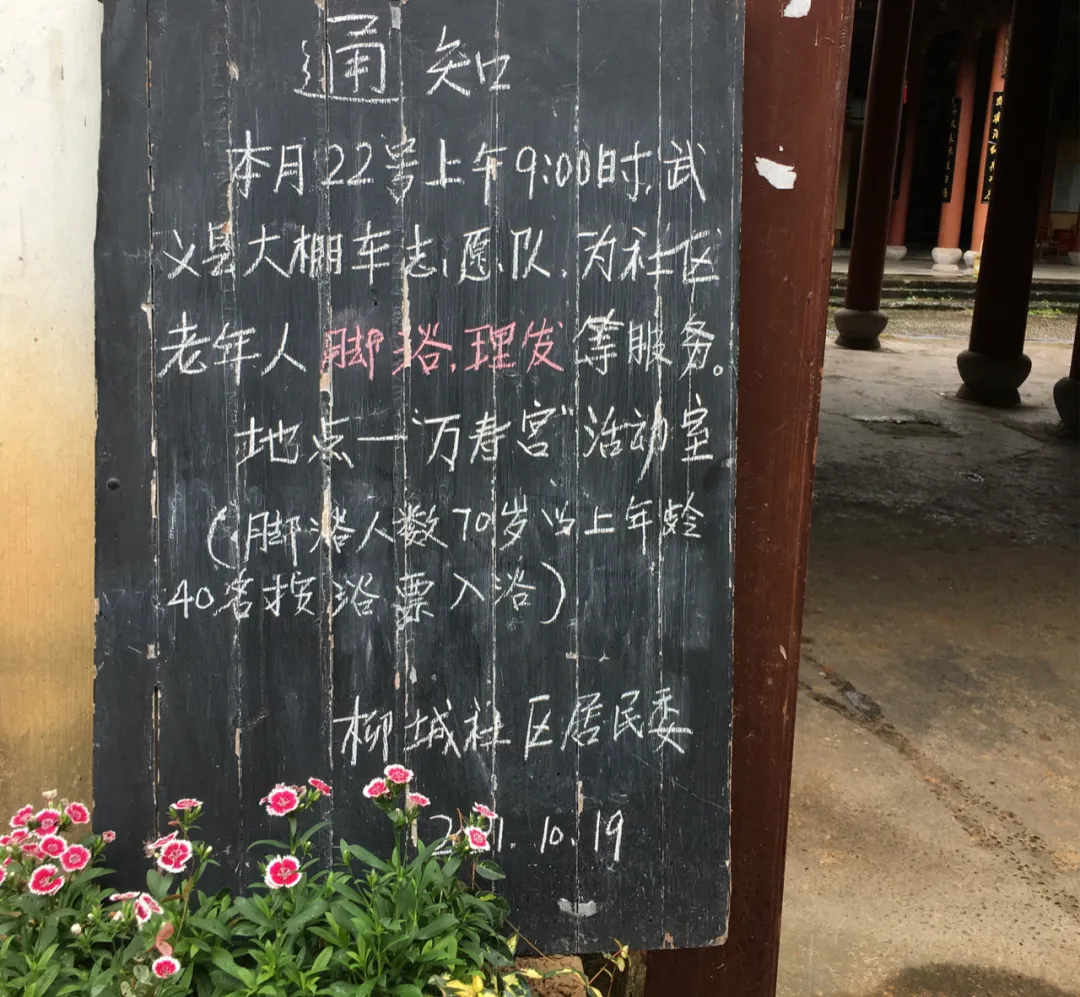 通知
本月22号上午9:00时,武
义县大棚车志愿队,为社区
老年人脚浴,理发等服务。
地点—"万寿宫"活动室
(脚浴人数70岁以上年龄
40名按浴票入浴)
柳城社区居民委
10.19